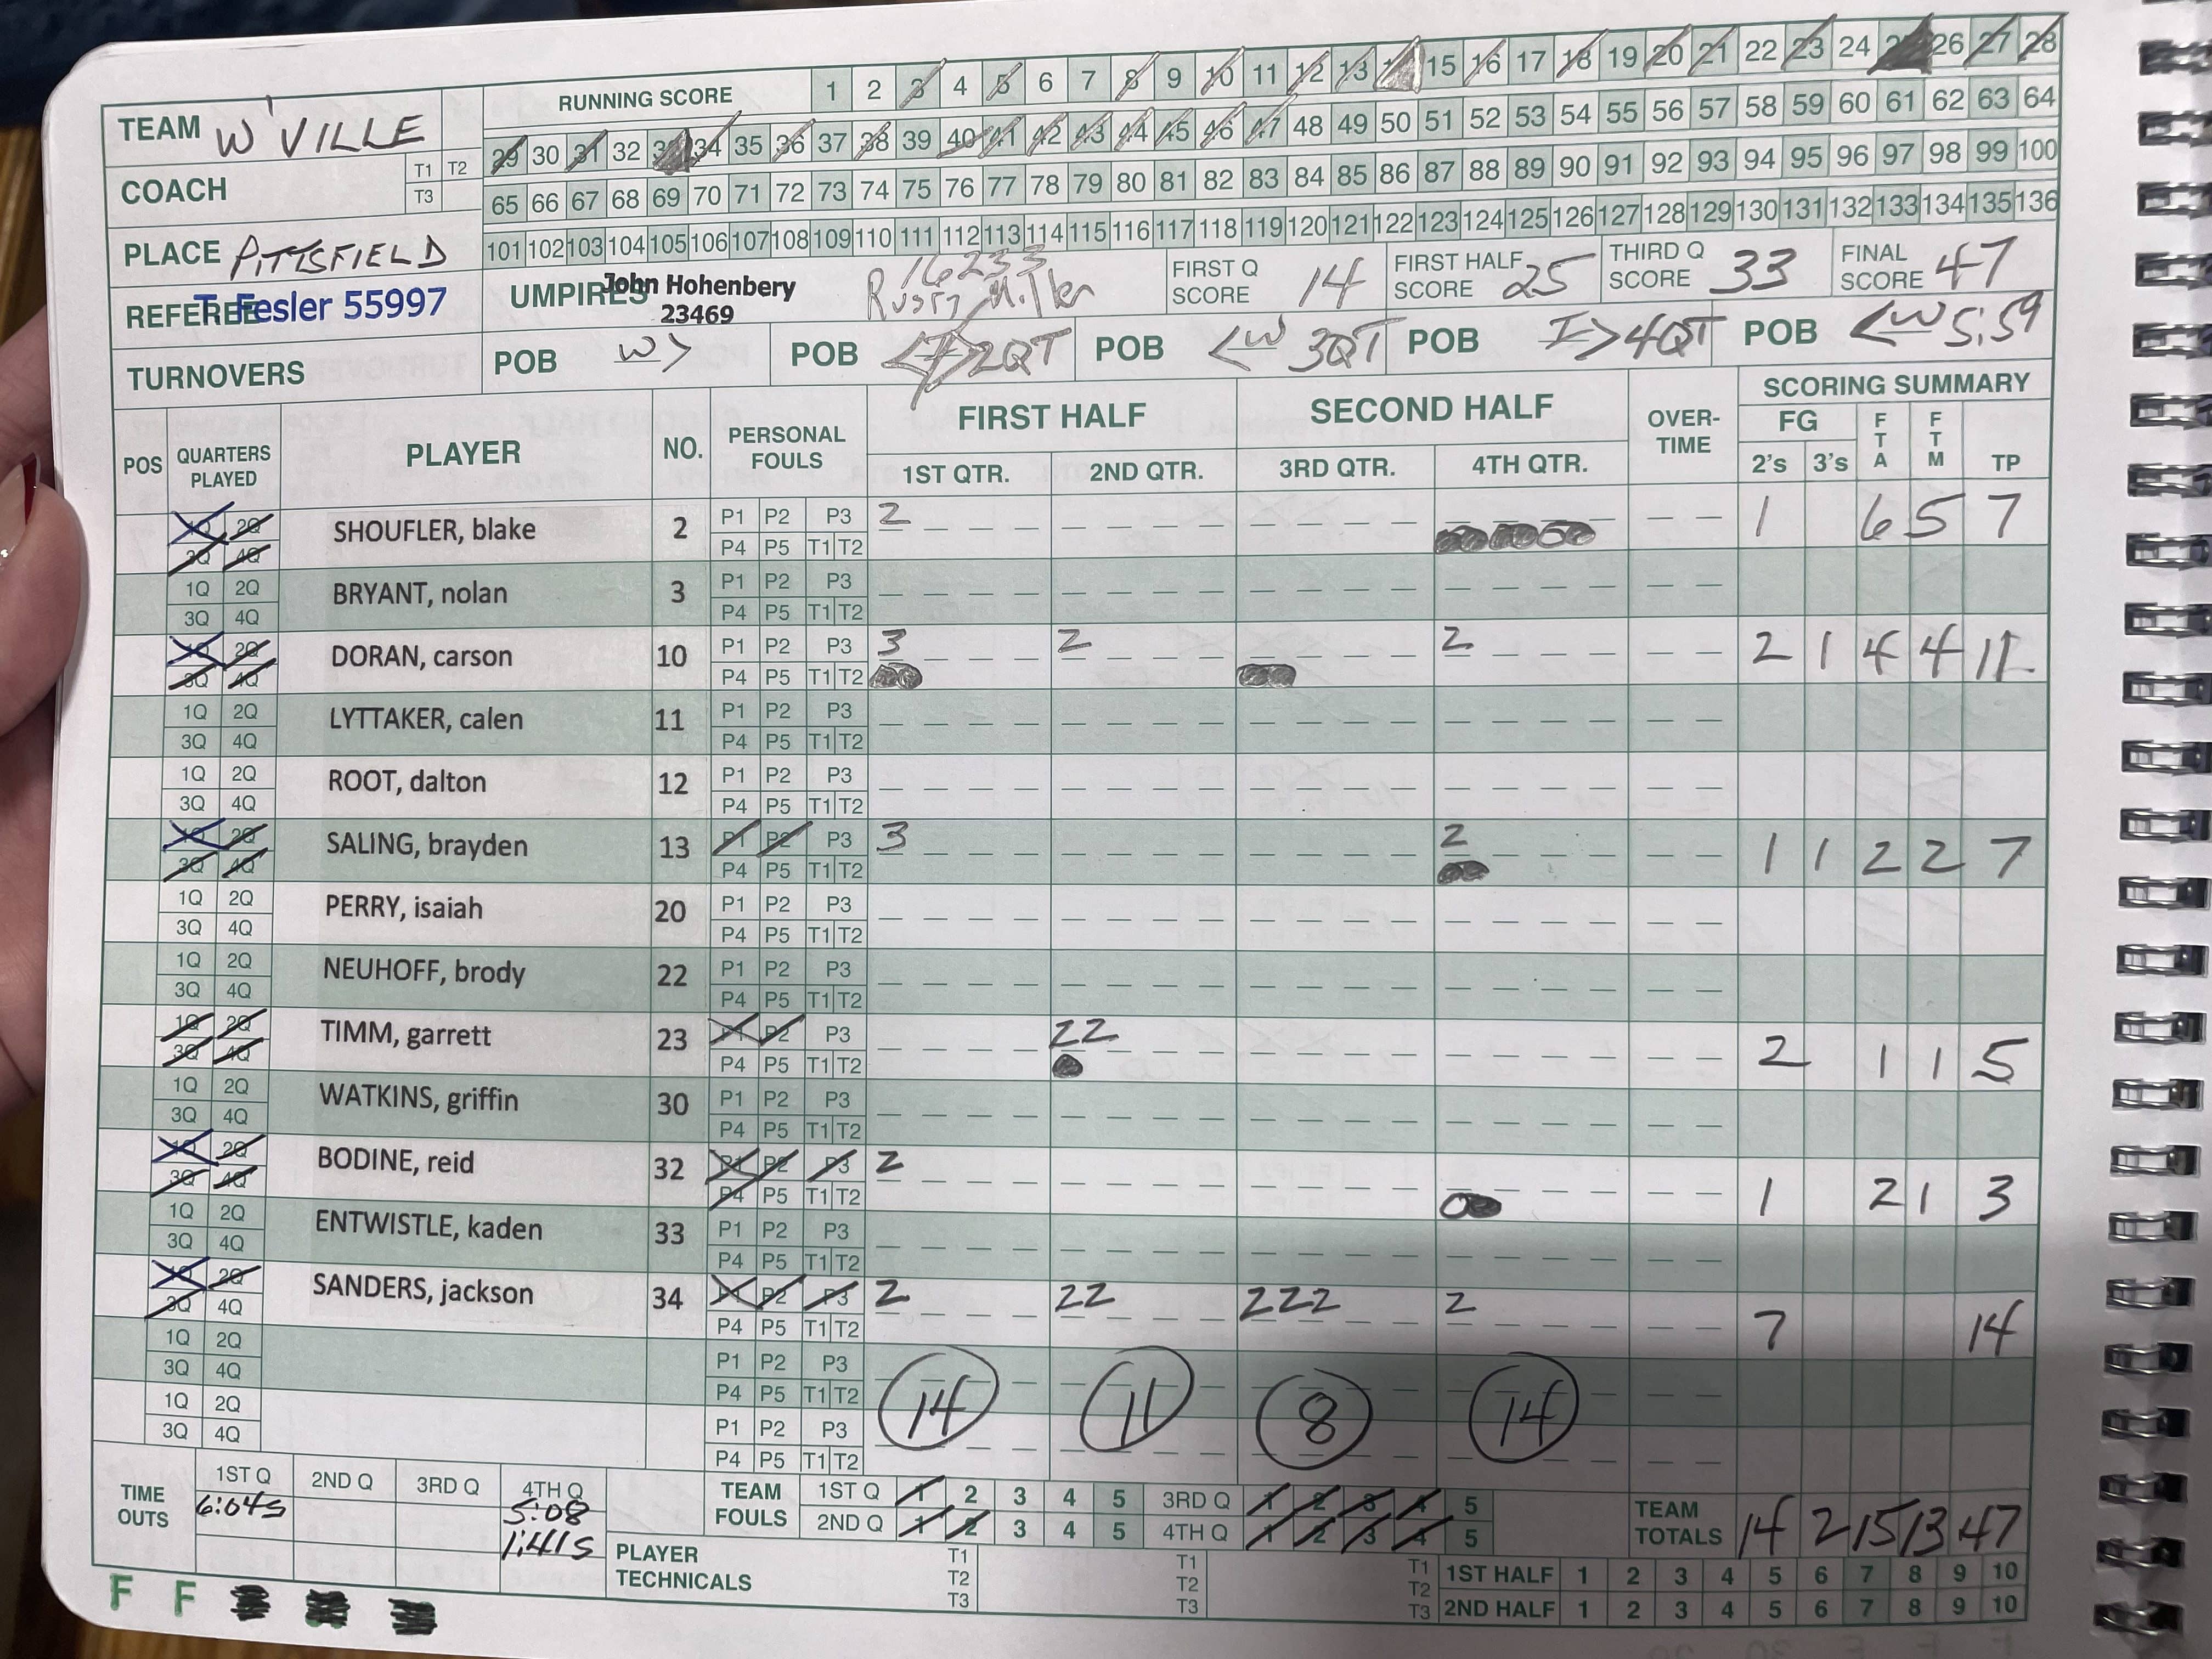 RUNNING SCORE 1 2 3 4 5 6 7 8 9 10 11 12 13 15 16 17 18 19 20 21 22 23 24 26 27 28
TEAM W'VILLE
29 30 31 32 34 35 36 37 38 39 40 41 42 43 44 45 46 47 48 49 50 51 52 53 54 55 56 57 58 59 60 61 62 63 64
COACH T1 T2 T3
65 66 67 68 69 70 71 72 73 74 75 76 77 78 79 80 81 82 83 84 85 86 87 88 89 90 91 92 93 94 95 96 97 98 99 100
101 102 103 104 105 106 107 108 109 110 111 112 113 114 115 116 117 118 119 120 121 122 123 124 125 126 127 128 129 130 131 132 133 134 135 136
PLACE PITTSFIELD
REFEREE T. Fesler 55997
UMPIRES John Hohenbery 23469 16233 Rusty Miller
FIRST Q SCORE 14 FIRST HALF SCORE 25 THIRD Q SCORE 33 FINAL SCORE 47
TURNOVERS POB W> POB 2QT POB <W 3QT POB I>4QT POB <W 5:59
POS QUARTERS PLAYED PLAYER NO. PERSONAL FOULS FIRST HALF SECOND HALF OVER-TIME SCORING SUMMARY
1ST QTR. 2ND QTR. 3RD QTR. 4TH QTR. FG 2's 3's FTA FTM TP
1Q 2Q SHOUFLER, blake 2 P1 P2 P3 2 1 6 5 7
3Q 4Q P4 P5 T1 T2
1Q 2Q BRYANT, nolan 3 P1 P2 P3
3Q 4Q P4 P5 T1 T2
1Q 2Q DORAN, carson 10 P1 P2 P3 3 2 2 2 1 4 4 11
3Q 4Q P4 P5 T1 T2
1Q 2Q LYTTAKER, calen 11 P1 P2 P3
3Q 4Q P4 P5 T1 T2
1Q 2Q ROOT, dalton 12 P1 P2 P3
3Q 4Q P4 P5 T1 T2
1Q 2Q SALING, brayden 13 P1 P2 P3 3 2 1 1 2 2 7
3Q 4Q P4 P5 T1 T2
1Q 2Q PERRY, isaiah 20 P1 P2 P3
3Q 4Q P4 P5 T1 T2
1Q 2Q NEUHOFF, brody 22 P1 P2 P3
3Q 4Q P4 P5 T1 T2
1Q 2Q TIMM, garrett 23 P1 P2 P3 22 2 1 1 5
3Q 4Q P4 P5 T1 T2
1Q 2Q WATKINS, griffin 30 P1 P2 P3
3Q 4Q P4 P5 T1 T2
1Q 2Q BODINE, reid 32 P1 P2 P3 2 1 2 1 3
3Q 4Q P4 P5 T1 T2
1Q 2Q ENTWISTLE, kaden 33 P1 P2 P3
3Q 4Q P4 P5 T1 T2
1Q 2Q SANDERS, jackson 34 P1 P2 P3 2 22 222 2 7 14
3Q 4Q P4 P5 T1 T2
1Q 2Q P1 P2 P3
3Q 4Q P4 P5 T1 T2 14 11 8 14
1Q 2Q P1 P2 P3
3Q 4Q P4 P5 T1 T2
TIME OUTS 1ST Q 2ND Q 3RD Q 4TH Q
6:04s 5:08
1:41s
TEAM FOULS 1ST Q 1 2 3 4 5 3RD Q 1 2 3 4 5
2ND Q 1 2 3 4 5 4TH Q 1 2 3 4 5
TEAM TOTALS 14 2 15 13 47
PLAYER TECHNICALS T1 T2 T3 T1 T2 T3 T1 T2 T3
1ST HALF 1 2 3 4 5 6 7 8 9 10
2ND HALF 1 2 3 4 5 6 7 8 9 10
F F